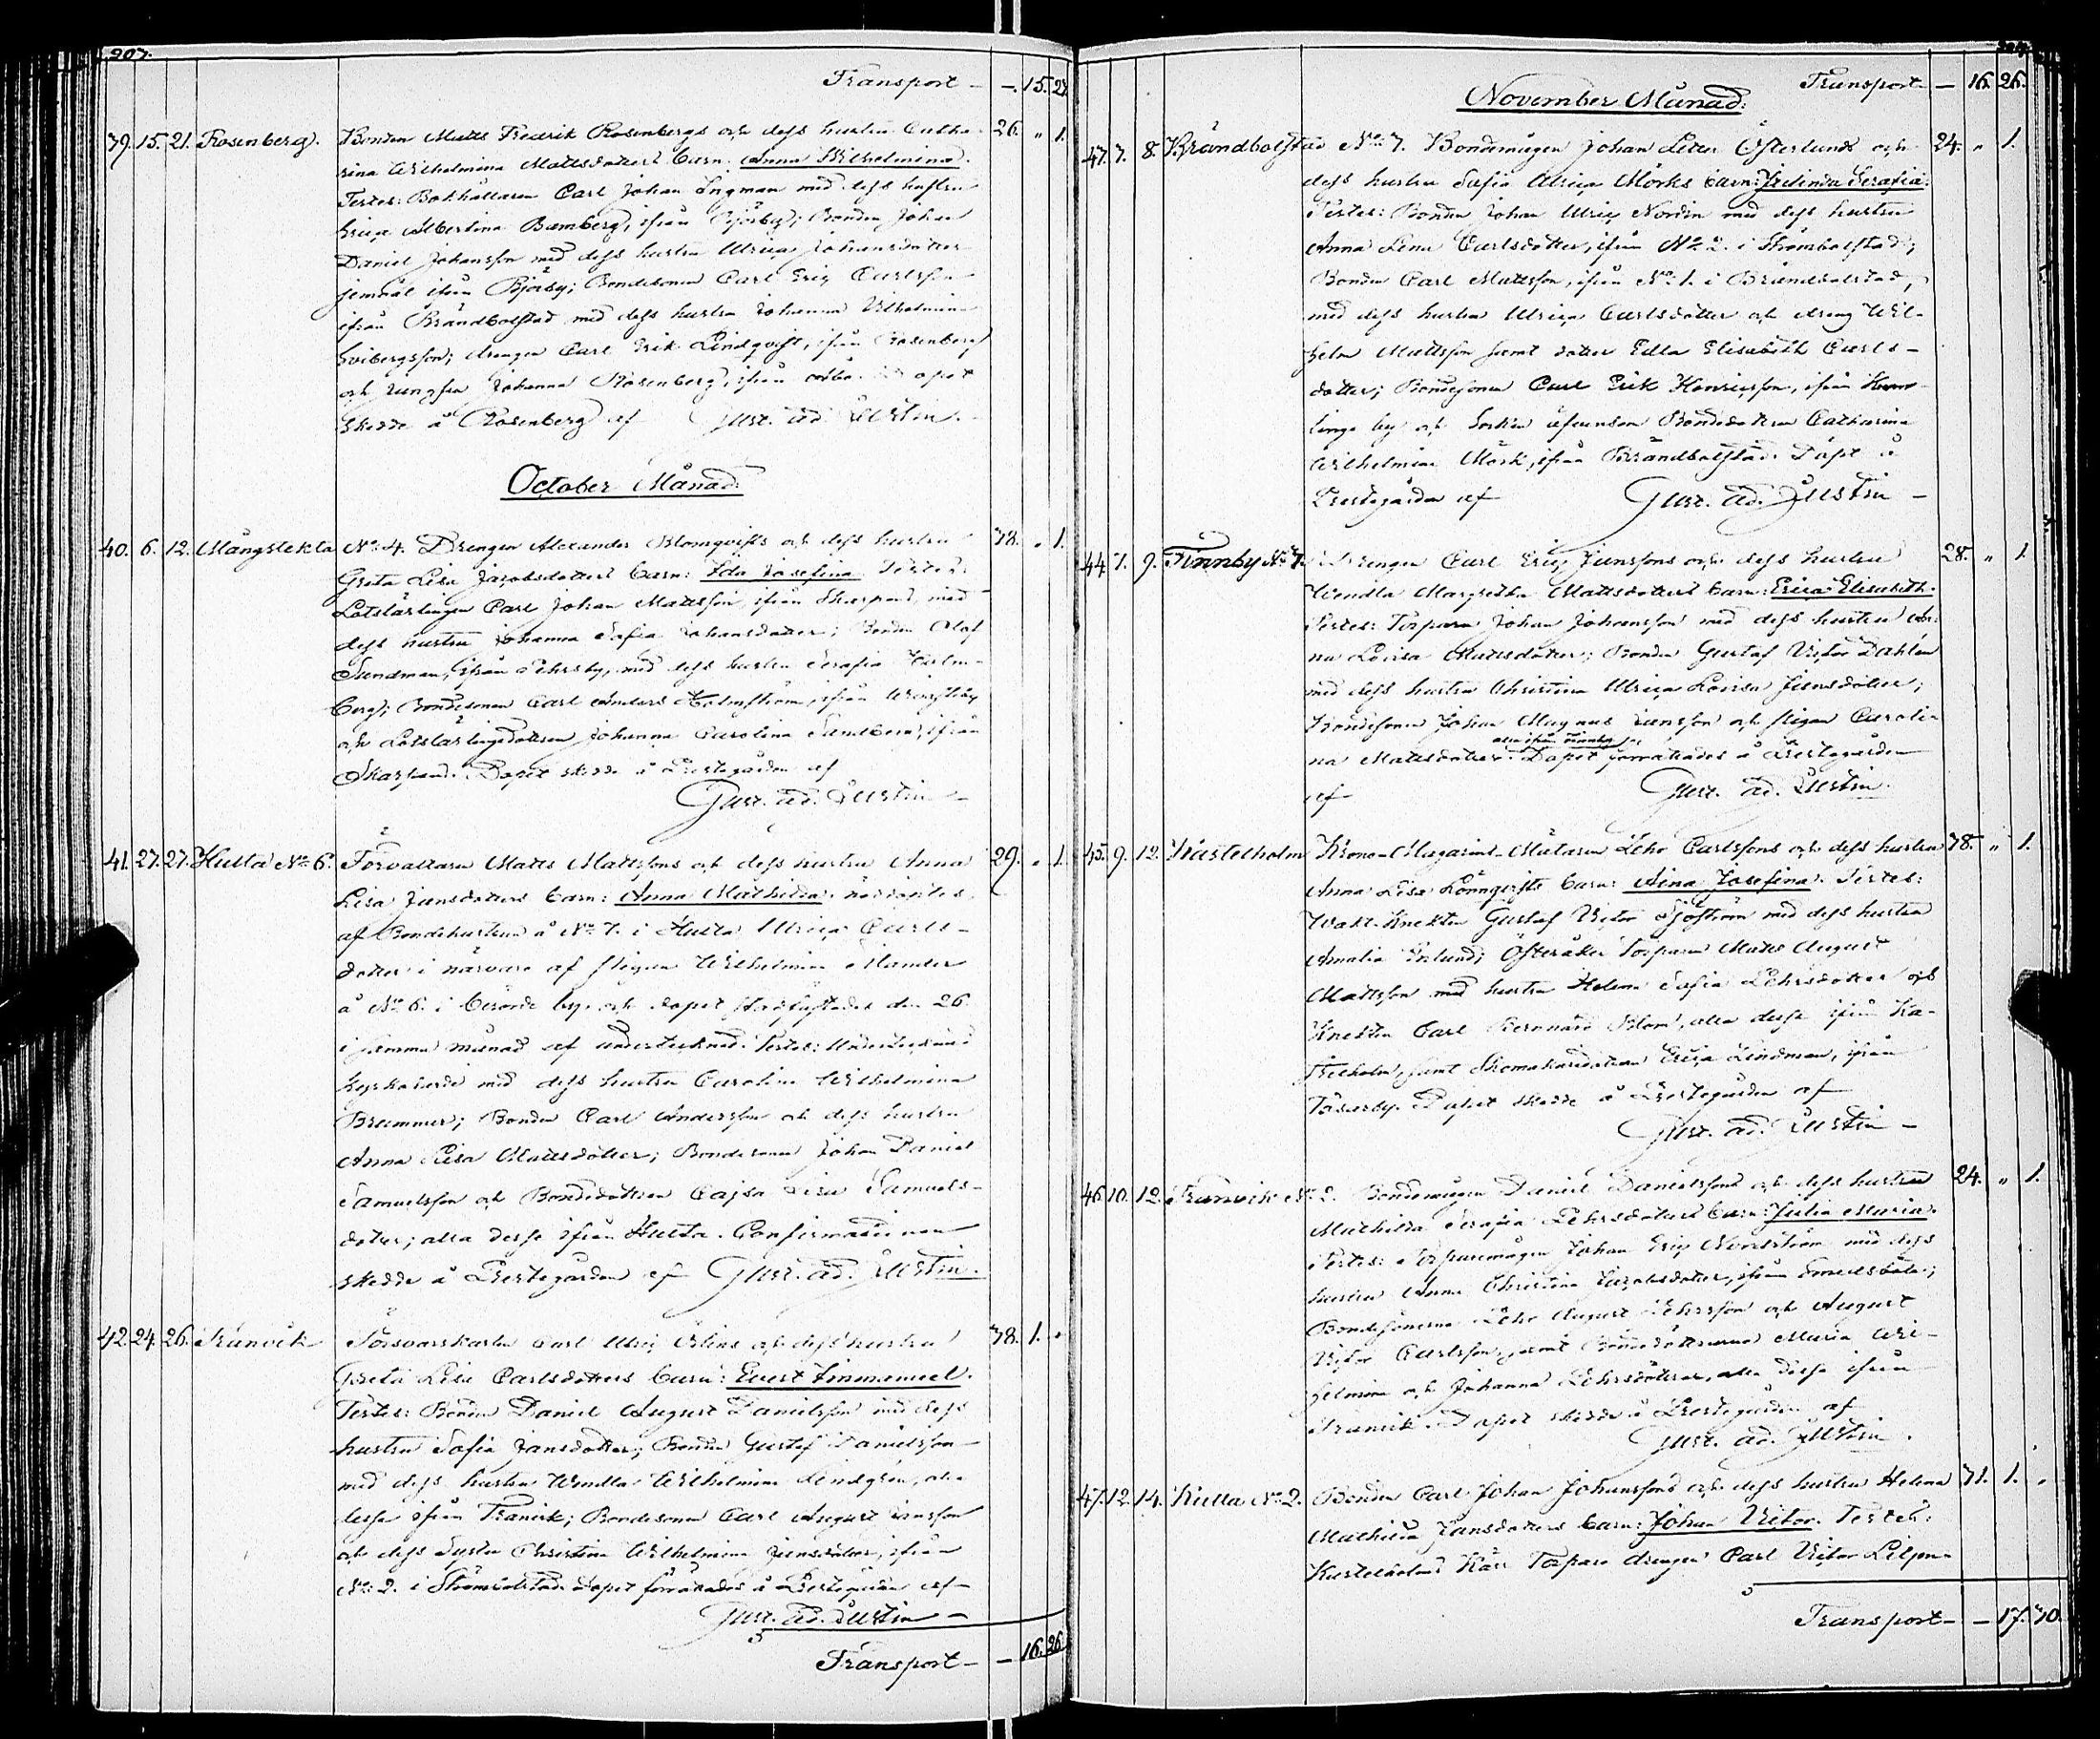 207.
Transport - -. 15. 23.
39. 15. 21. Rosenberg. Bonden Matts Fredrik Rosenbergs och dess hustru Catha- 26. " 1.
rina Wilhelmina Mattsdotters barn: Anna Wilhelmina.
Testes: Bokhållaren Carl Johan Ingman med dess hustru
Erica Albertina Bamberg, ifrån Björby; Bonden Johan
Daniel Johansson med dess hustru Ulrica Johansdotter
jemväl ifrån Björby; Bondesonen Carl Eric Carlsson
ifrån Brändbolstad med dess hustru Johanna Vilhelmina
drengen Carl Erik Lindqvist, ifrån Rosenberg
och Jungfru Johanna Rosenberg, ifrån dopet
skedde å Rosenberg af Gust. Ad. Öustin.
October Månad
40. 6. 12. Mångstekta No 4. Drengen Alexander Blomqvists och dess hustru 78. " 1.
Greta Lisa Jacobsdotters barn: Ida Josefina Testes:
Lotslärlingen Carl Johan Mattsson ifrån Skarpans, med
dess hustru Johanna Sofia Johansdotter; Bonden Olof
Sundman, ifrån Pehrsby, med dess hustru Serafia Holm-
berg; Bondesonen Carl Anders Holmström, ifrån
och Lotslärlingsdottren Johanna Carolina ifrån
Skarpans. Dopet skedde å Prestegården af
Gust. Ad. Öustin -
41. 27. 27. Hulta No 6. Förvaltaren Matts Mattssons och dess hustru Anna 29. " 1.
Lisa Jansdotters barn: Anna Mathilda, nöddöptes
af Bondehustrun å No 7. i Hulta Ulrica Carls-
dotter i närvaro af pigan Wilhelmina Mander
å No 6. i berörde by, och dopet stadfästades den 26.
i samma månad af undertecknad. Testes: Undertecknad
Kyrkoherde med dess hustru Carolina Wilhelmina
Brummer; Bonden Carl Andersson och dess hustru
Anna Lisa Mattsdotter; Bondesonen Johan Daniel
Samuelsson och Bondedottren Cajsa Lisa Samuels-
dotter; alla desse ifrån Hulta. Confirmationen
skedde å Prestegården af Gust. Ad. Öustin.
42. 24. 26. Tranvik Försvarskarlen Carl Ulric Öhlins och dess hustru 78. 1. "
Greta Lisa Carlsdotters barn: Evert Immanuel.
Testes: Bonden Daniel August Danielsson med dess
hustru Sofia Jansdotter; Bonden Gustaf Danielsson
med dess hustru Wendla Wilhelmina Lindgrén, alla
desse ifrån Tranvik; Bondesonen Carl August Jansson
och dess Syster Christina Wilhelmina Jansdotter, ifrån
No 2. i Strömbolstad. Dopet förrättades å Prestegården af
Gust. Ad. Öustin -
Transport - - 16. 26.
November Månad: Transport - - 16. 26.
47. 7. 8. Brändbolstad No 7. Bondemågen Johan Petter Österlunds och 24. " 1.
dess hustru Sofia Ulrica Mörks barn: Fredinda Serafia:
Testes: Bonden Johan Ulric Nordin med dess hustru
Anna Lena Carlsdotter, ifrån No 2. i Strömbolstad;
Bonden Carl Mattsson, ifrån No 1. i Brändbolstad,
med dess hustru Ulrica Carlsdotter och dreng Wil-
helm Mattsson samt dotter Edla Elisabeth Carls-
dotter; Bondesonen Carl Erik Henricsson, ifrån Kum-
linge by och Socken Bondedottren Catharina
Wilhelmina Mörk, ifrån Brändbolstad. Döpt å
Prestegården af Gust. Ad. Öustin -
44. 7. 9. Finnby No 7. Drengen Carl Eric Janssons och dess hustru 28. " 1.
Wendla Margretha Mattsdotters barn: Erica Elisabeth.
Testes: Torparn Johan Johansson med dess hustru An-
na Lovisa Mattsdotter; Bonden Gustaf Victor Dahlén
med dess hustru Christina Ulrica Lovisa Jansdotter;
Bondesonen Johan Magnus Jansson och pigan Caroli-
alla ifrån Finnby
na Mattsdotter. Dopet förrättades å Prestegården
af Gust. Ad. Öustin.
45. 9. 12. Kastelholm Krono-Magasins-Mätaren Pehr Carlssons och dess hustru 78. " 1.
Anna Lisa Lönnqvists barn: Aina Josefina. Testes:
Wakt-Knekten Gustaf Victor Sjöström med dess hustru
Amalia Östlund; Österåker Torparn Matts August
Mattsson med hustru Helena Sofia Pehrsdotter och
Knekten Carl Bernhard Blom, alla desse ifrån Ka-
stelholm, samt Skomakaredottren Erica Lindman, ifrån
Tosarby. Dopet skedde å Prestegården af
Gust. Ad. Öustin -
46. 10. 12. Tranvik No 2. Bondemågen Daniel Danielssons och dess hustru 24. " 1.
Mathilda Serafia Pehrsdotters barn: Julia Maria.
Testes: Torparemågen Johan Eric Nordström med dess
hustru Anna Christina Jacobsdotter, ifrån Smedsböle;
Bondesönerna Pehr August Pehrsson och August
Victor Carlsson, samt Bondedöttrarne Maria Wil-
helmina och Johanna Pehrsdöttrar, alla desse ifrån
Tranvik. Dopet skedde å Prestegården af
Gust. Ad. Öustin.
47. 12. 14. Kulla No 2. Bonden Carl Johan Johanssons och dess hustru Helena 71. 1. "
Mathilda Jansdotters barn: Johan Victor. Testes:
Kastelholms Kärr Torpare drengen Carl Victor Liljen-
Transport - - 17. 30.